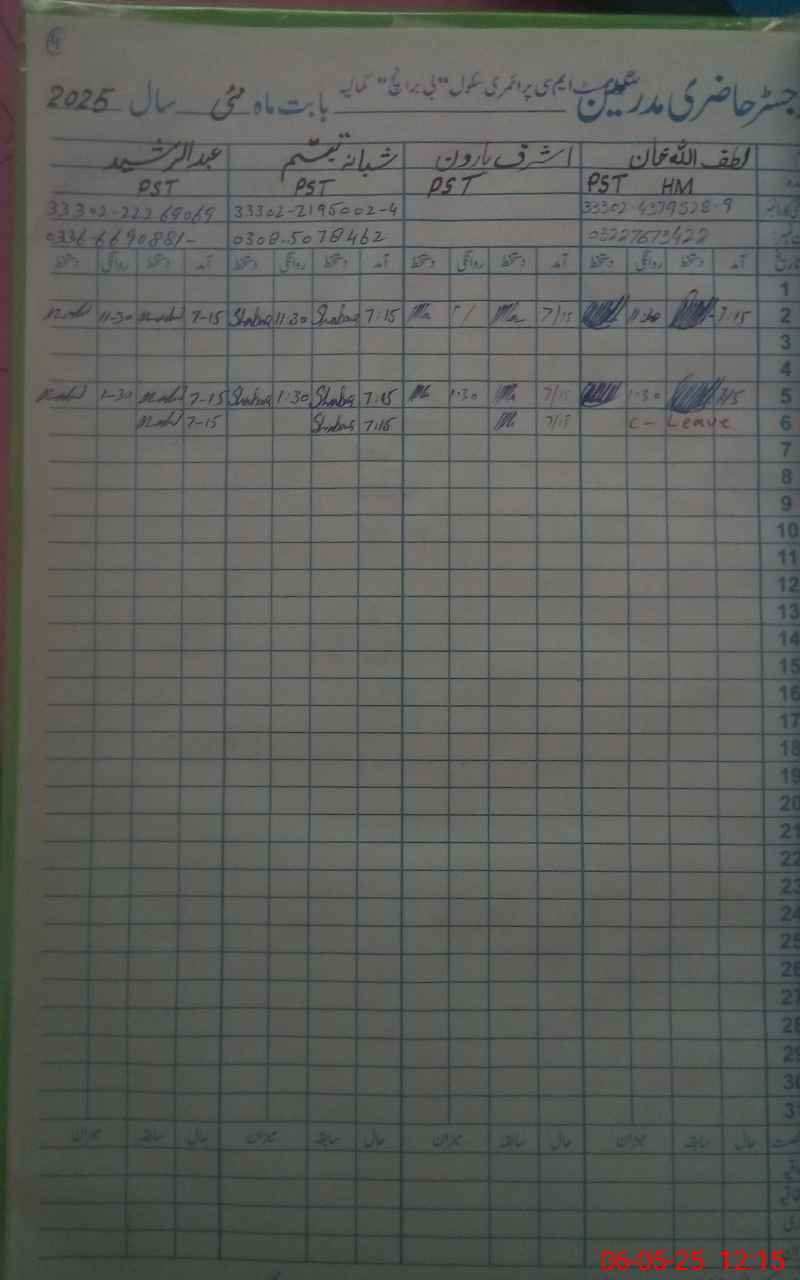 4
رجسٹر حاضری مدرسین گورنمنٹ ایم سی پرائمری سکول "بی برانچ" کمالیہ بابت ماہ مئی سال 2025
لطف اللہ خان اشرف ہارون شبانہ تبسم عبدالرشید
PST HM PST PST PST
33302-4379528-9 33302-2195002-4 33302-22269069
03227673422 0308-5078462 0336-6690881-
تاریخ آمد دستخط روانگی دستخط آمد دستخط روانگی دستخط آمد دستخط روانگی دستخط آمد دستخط روانگی دستخط
1
2 7:15 11:30 7/15 7:15 Shabana 11:30 Shabana 7-15 11-30
3
4
5 7/15 1:30 7/15 1:30 7:15 Shabana 1:30 Shabana 7-15 1-30
6 C- Leave 7/15 7:15 Shabana 7-15
7
8
9
10
11
12
13
14
15
16
17
18
19
20
21
22
23
24
25
26
27
28
29
30
31
حال سابقہ میزان حال سابقہ میزان حال سابقہ میزان حال سابقہ میزان
06-05-25 12:15